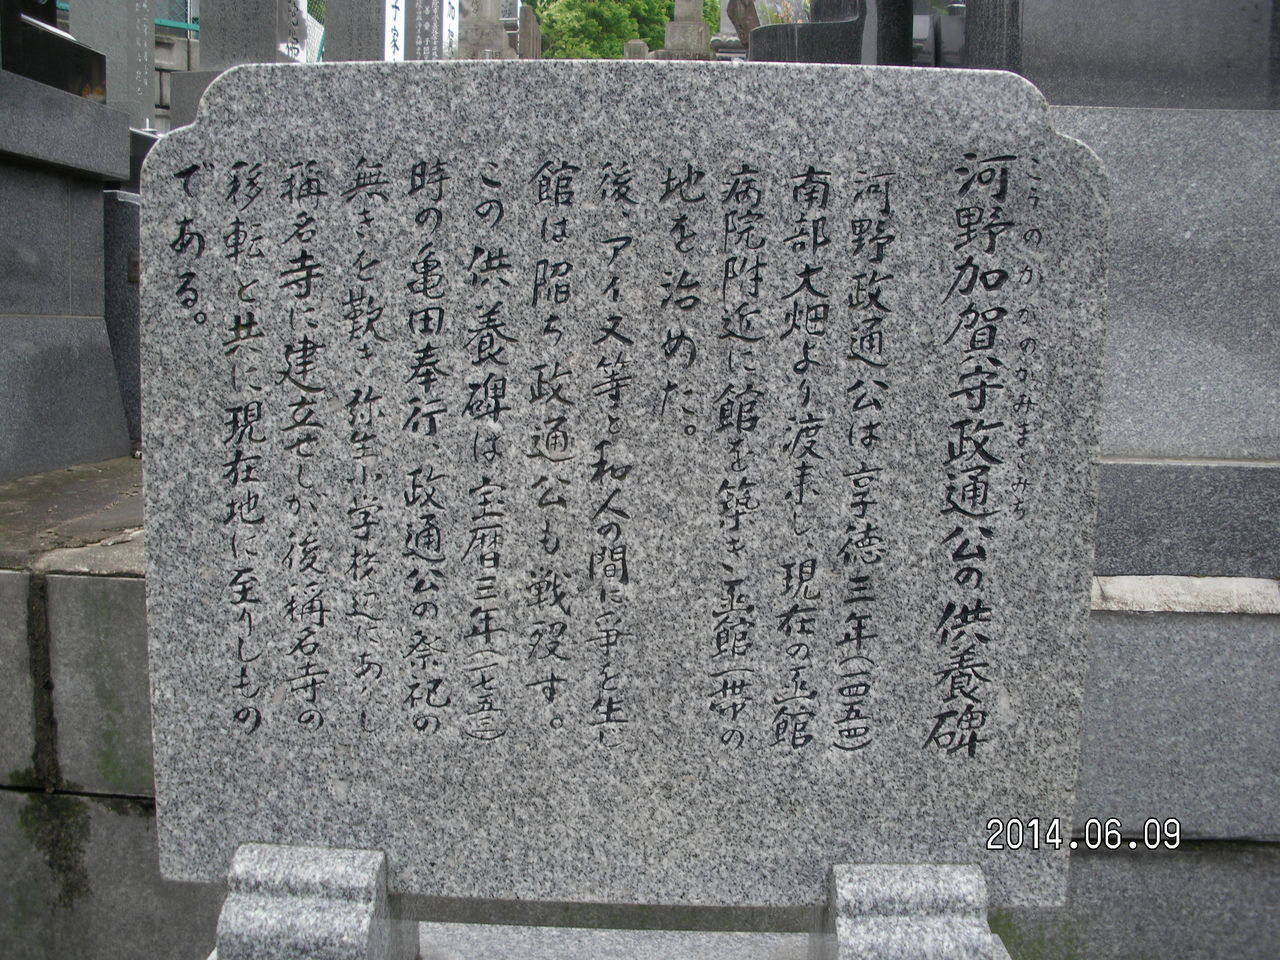 河野加賀守政通公の供養碑
こうのかがのかみまさみち
河野政通公は享徳三年(一四五四)
南部大畑より渡来し、現在の函館
病院附近に館を築き、函館一帯の
地を治めた。
後、アイヌ等と和人の間に争を生じ
館は陥ち政通公も戦歿す。
この供養碑は宝暦三年(一七五三)
時の亀田奉行、政通公の祭祀の
無きを歎き弥生小学校辺にありし
稱名寺に建立せしが、後稱名寺の
移転と共に現在地に至りしもの
である。
2014.06.09